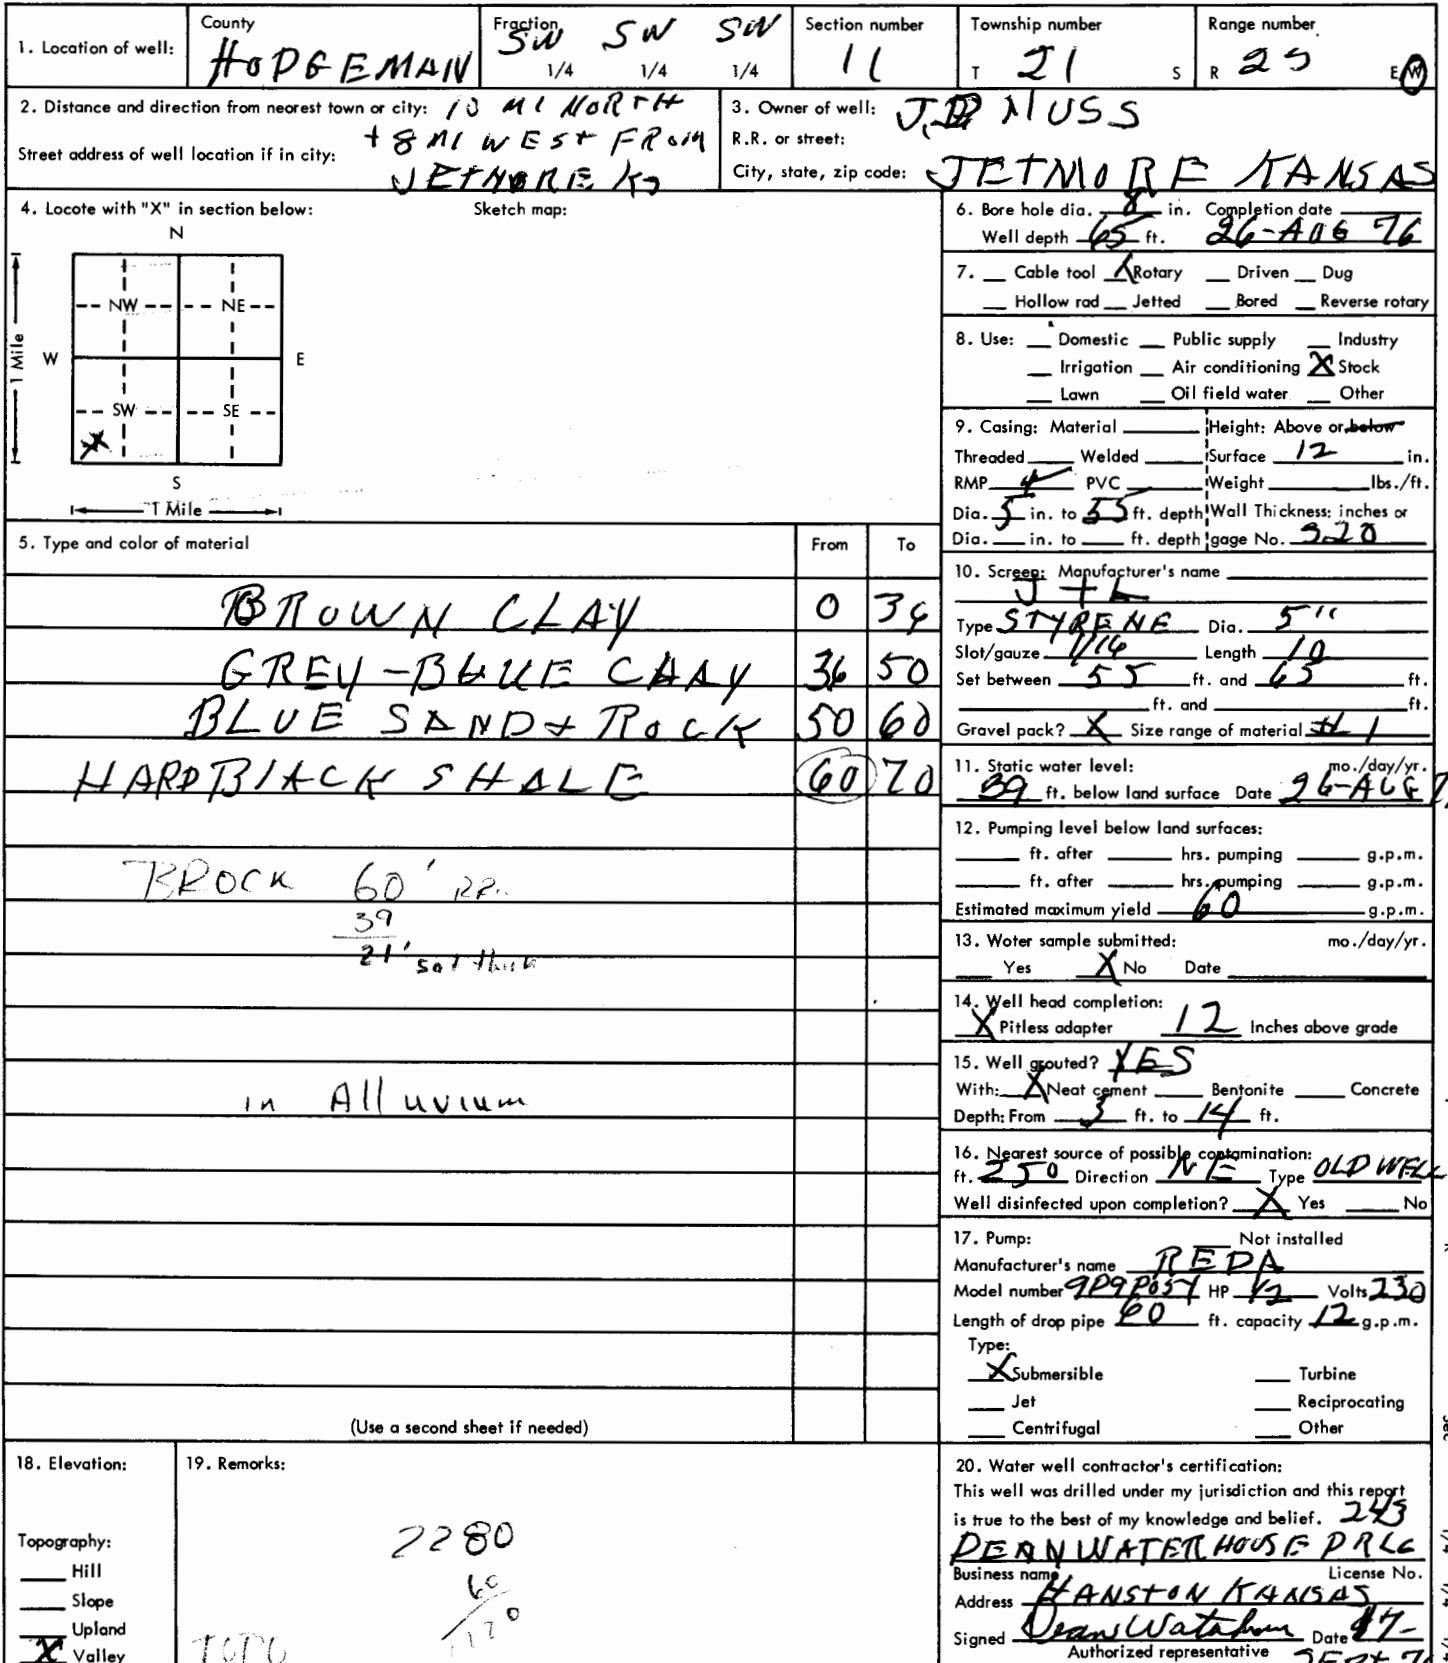 1. Location of well:
County
HODGEMAN
Fraction
SW SW SW
1/4 1/4 1/4
Section number
11
Township number
T 21 S
Range number
R 25 E W
2. Distance and direction from neorest town or city: 10 MI NORTH
+ 8 MI WEST FROM
Street address of well location if in city:
JETMORE KS
3. Owner of well: J.D. NUSS
R.R. or street:
City, state, zip code: JETMORE KANSAS
4. Locote with "X" in section below:
Sketch map:
N
NW NE
W E
1 Mile
SW SE
X
S
1 Mile
5. Type and color of material From To
BROWN CLAY 0 36
GREY-BLUE CLAY 36 50
BLUE SAND + ROCK 50 60
HARD BLACK SHALE 60 70
BROCK 60'
39
21' sat thick
in Alluvium
(Use a second sheet if needed)
6. Bore hole dia. 8 in. Completion date
Well depth 65 ft. 26-AUG 76
7. __ Cable tool X Rotary __ Driven __ Dug
__ Hollow rad __ Jetted __ Bored __ Reverse rotary
8. Use: __ Domestic __ Public supply __ Industry
__ Irrigation __ Air conditioning X Stock
__ Lawn __ Oil field water __ Other
9. Casing: Material ____ Height: Above or below
Threaded ____ Welded ____ Surface 12 in.
RMP ____ PVC ____ Weight ____ lbs./ft.
Dia. 5 in. to 55 ft. depth Wall Thickness: inches or
Dia. ___ in. to ___ ft. depth gage No. 320
10. Screen: Manufacturer's name
J + L
Type STYRENE Dia. 5"
Slot/gauze 1/16 Length 10
Set between 55 ft. and 65 ft.
____ ft. and ____ ft.
Gravel pack? X Size range of material # 1
11. Static water level: mo./day/yr.
39 ft. below land surface Date 26-AUG
12. Pumping level below land surfaces:
____ ft. after ____ hrs. pumping ____ g.p.m.
____ ft. after ____ hrs. pumping ____ g.p.m.
Estimated maximum yield 60 g.p.m.
13. Woter sample submitted: mo./day/yr.
__ Yes X No Date ____
14. Well head completion:
X Pitless adapter 12 Inches above grade
15. Well grouted? YES
With: X Neat cement ____ Bentonite ____ Concrete
Depth: From 3 ft. to 14 ft.
16. Nearest source of possible contamination:
ft. 250 Direction NE Type OLD WELL
Well disinfected upon completion? X Yes ____ No
17. Pump: ____ Not installed
Manufacturer's name REDA
Model number HP 1/2 Volts 230
Length of drop pipe 60 ft. capacity 12 g.p.m.
Type:
X Submersible ____ Turbine
____ Jet ____ Reciprocating
____ Centrifugal ____ Other
18. Elevation:
Topography:
____ Hill
____ Slope
____ Upland
X Valley
19. Remarks:
2280
60
TOPO
20. Water well contractor's certification:
This well was drilled under my jurisdiction and this report
is true to the best of my knowledge and belief. 243
DEAN WATERHOUSE DRLG
Business name License No.
Address HANSTON KANSAS
Signed Dean Waterhouse Date 7-
Authorized representative SEPT 76